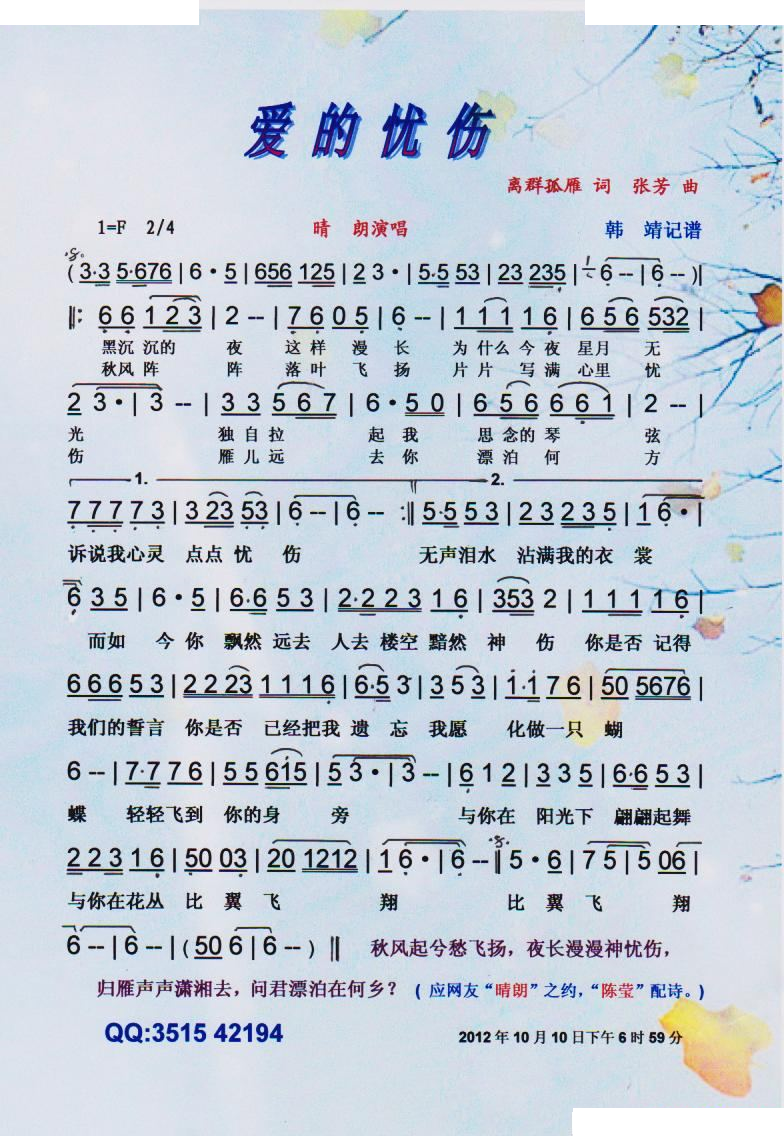 爱的忧伤
离群孤雁 词 张芳 曲
1=F 2/4 晴 朗演唱 韩 靖记谱
( 3·3 5·676 | 6 · 5 | 656 125 | 2 3 · | 5·5 53 | 23 235 | 6 -- | 6 -- ) ||
||: 6 6 1 2 3 | 2 -- | 7 6 0 5 | 6 -- | 1 1 1 1 6 | 6 5 6 532 |
黑沉 沉的 夜 这样 漫 长 为 什么 今夜 星月 无
秋风 阵 阵 落叶 飞 扬 片 片 写满 心里 忧
2 3 · | 3 -- | 3 3 5 6 7 | 6 · 5 0 | 6 5 6 6 6 1 | 2 -- |
光 独 自 拉 起 我 思 念的 琴 弦
伤 雁 儿 远 去 你 漂 泊 何 方
1. 2.
7 7 7 7 3 | 3 23 53 | 6 -- | 6 -- :|| 5·5 5 3 | 2 3 2 3 5 | 1 6 · |
诉说我心灵 点点 忧 伤 无声泪水 沾满我的衣 裳
6 3 5 | 6 · 5 | 6·6 5 3 | 2·2 2 3 1 6 | 353 2 | 1 1 1 1 6 |
而如 今 你 飘然 远去 人去 楼空 黯然 神 伤 你是否 记得
6 6 6 5 3 | 2 2 23 1 1 1 6 | 6·5 3 | 3 5 3 | 1·1 7 6 | 50 5676 |
我们的誓言 你是否 已经把我 遗 忘 我愿 化做一只 蝴
6 -- | 7·7 7 6 | 5 5 615 | 5 3 · | 3 -- | 6 1 2 | 3 3 5 | 6·6 5 3 |
蝶 轻轻飞到 你的身 旁 与你在 阳光下 翩翩起舞
2 2 3 1 6 | 50 03 | 20 1212 | 1 6 · | 6 -- || 5 · 6 | 7 5 | 5 06 |
与你在花丛 比 翼 飞 翔 比 翼 飞 翔
6 -- | 6 -- | ( 50 6 | 6 -- ) || 秋风起兮愁飞扬，夜长漫漫神忧伤，
归雁声声潇湘去，问君漂泊在何乡？ ( 应网友“晴朗”之约，“陈莹”配诗。)
QQ:3515 42194 2012 年 10 月 10 日下午 6 时 59 分